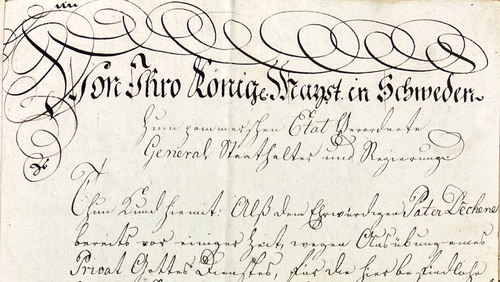 Von Ihro Königl. Mayst. in Schweden
zum pommerschen Etat Verordnete
General Staathalter und Regierung
Thun Kund hiemit: Alß dem Ehrwürdigen Pater Dechene
bereits vor einiger Zeit, wegen Ausübung eines
Privat Gottes Dienstes, für die hier befindliche